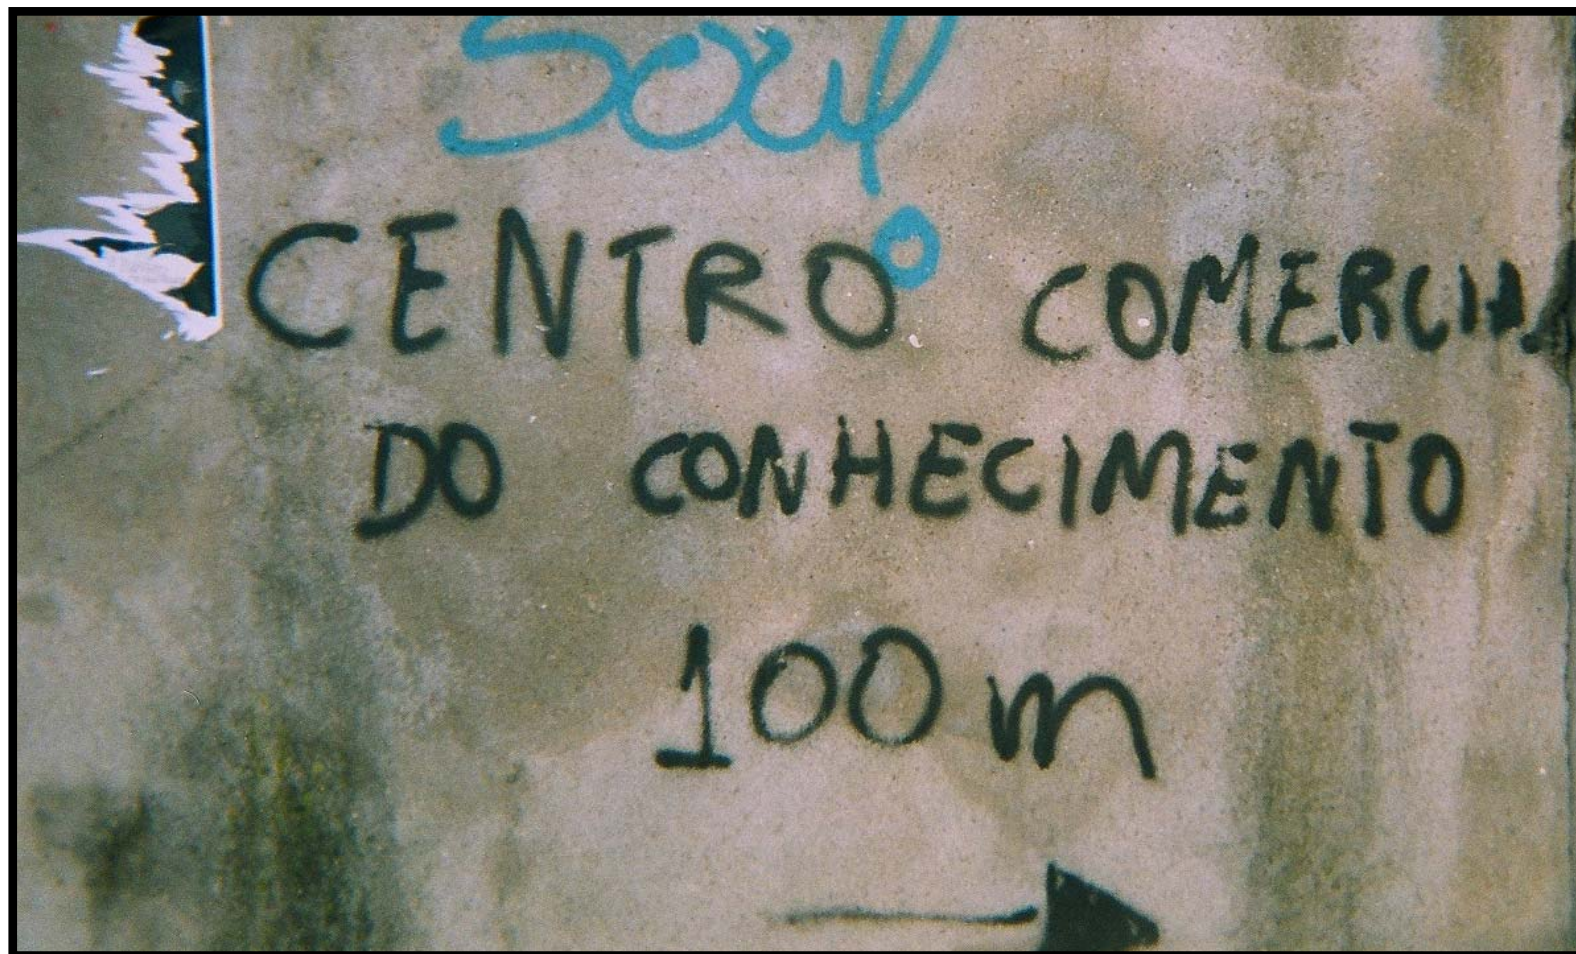 Soul
CENTRO COMERCIAL
DO CONHECIMENTO
100 m